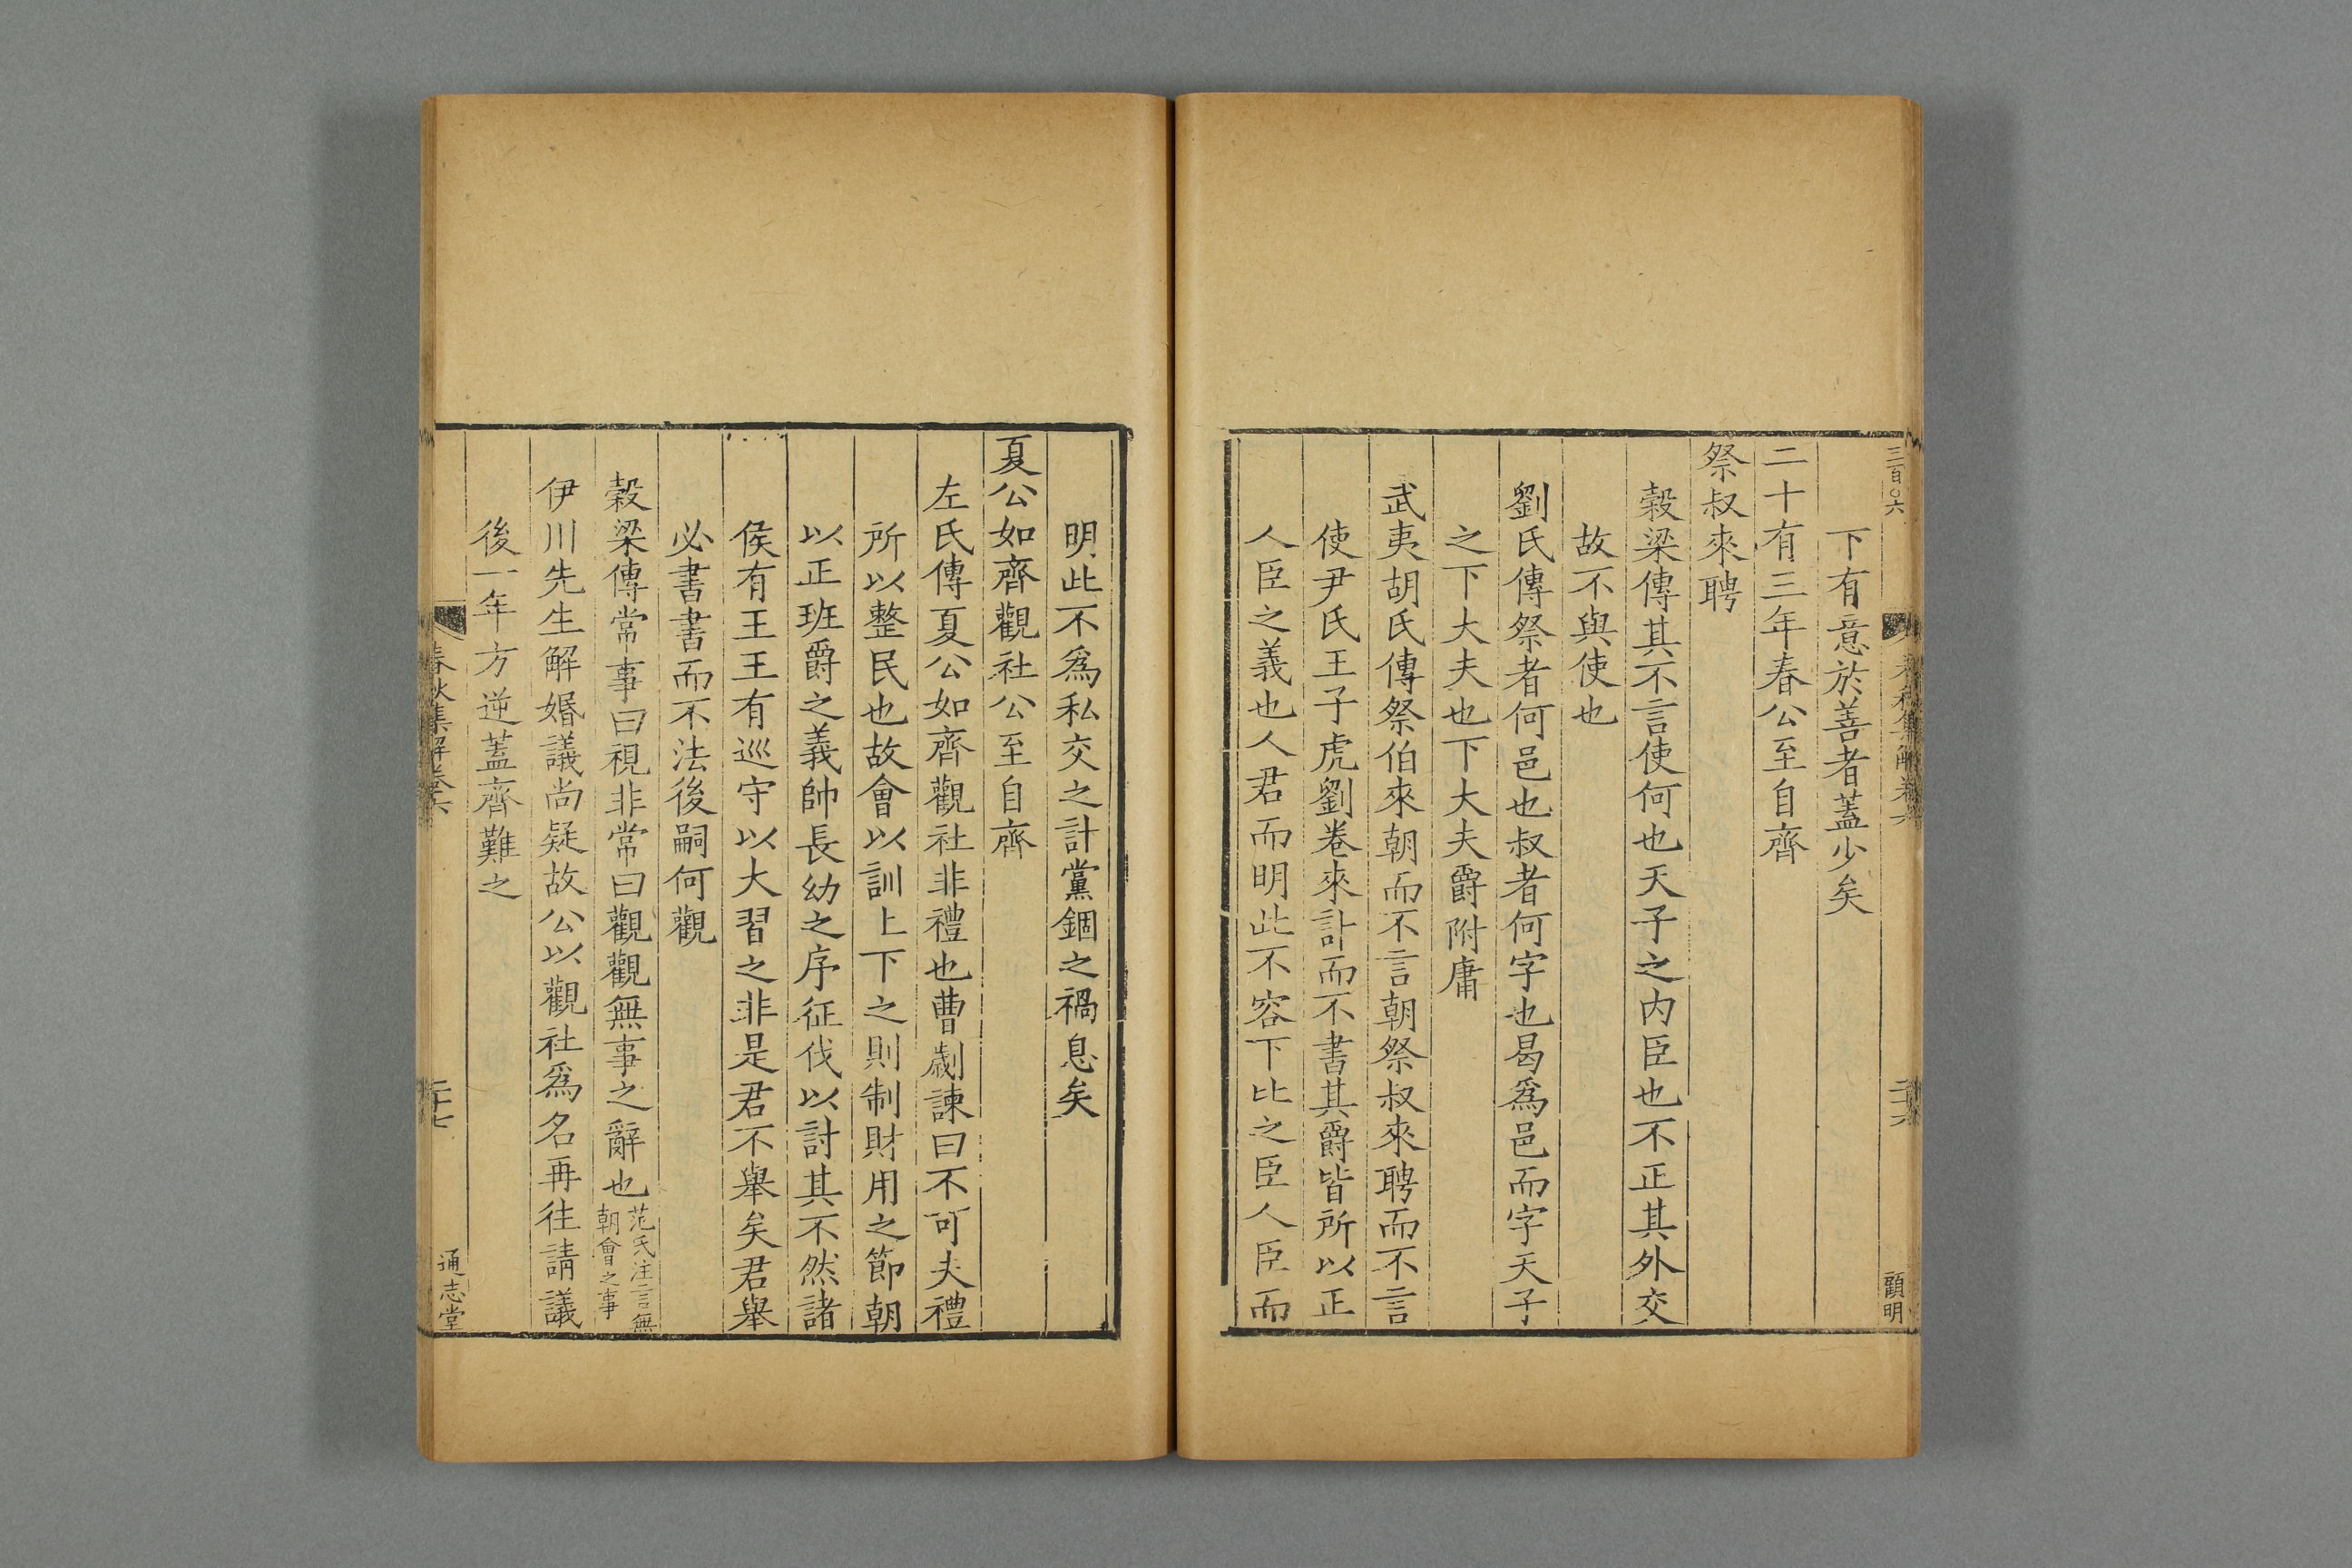 三百〇六
春秋集解卷六
二十六
顧明
下有意於善者蓋少矣
二十有三年春公至自齊
祭叔來聘
穀梁傳其不言使何也天子之内臣也不正其外交
故不與使也
劉氏傳祭者何邑也叔者何字也曷爲邑而字天子
之下大夫也下大夫爵附庸
武夷胡氏傳祭伯來朝而不言朝祭叔來聘而不言
使尹氏王子虎劉卷來訃而不書其爵皆所以正
人臣之義也人君而明此不容下比之臣人臣而
明此不爲私交之計黨錮之禍息矣
夏公如齊觀社公至自齊
左氏傳夏公如齊觀社非禮也曹劌諫曰不可夫禮
所以整民也故會以訓上下之則制財用之節朝
以正班爵之義帥長幼之序征伐以討其不然諸
侯有王王有巡守以大習之非是君不舉矣君舉
必書書而不法後嗣何觀
穀梁傳常事曰視非常曰觀觀無事之辭也范氏注言無
朝會之事
伊川先生解婚議尚疑故公以觀社爲名再往請議
後一年方逆蓋齊難之
春秋集解卷六
二十七
通志堂